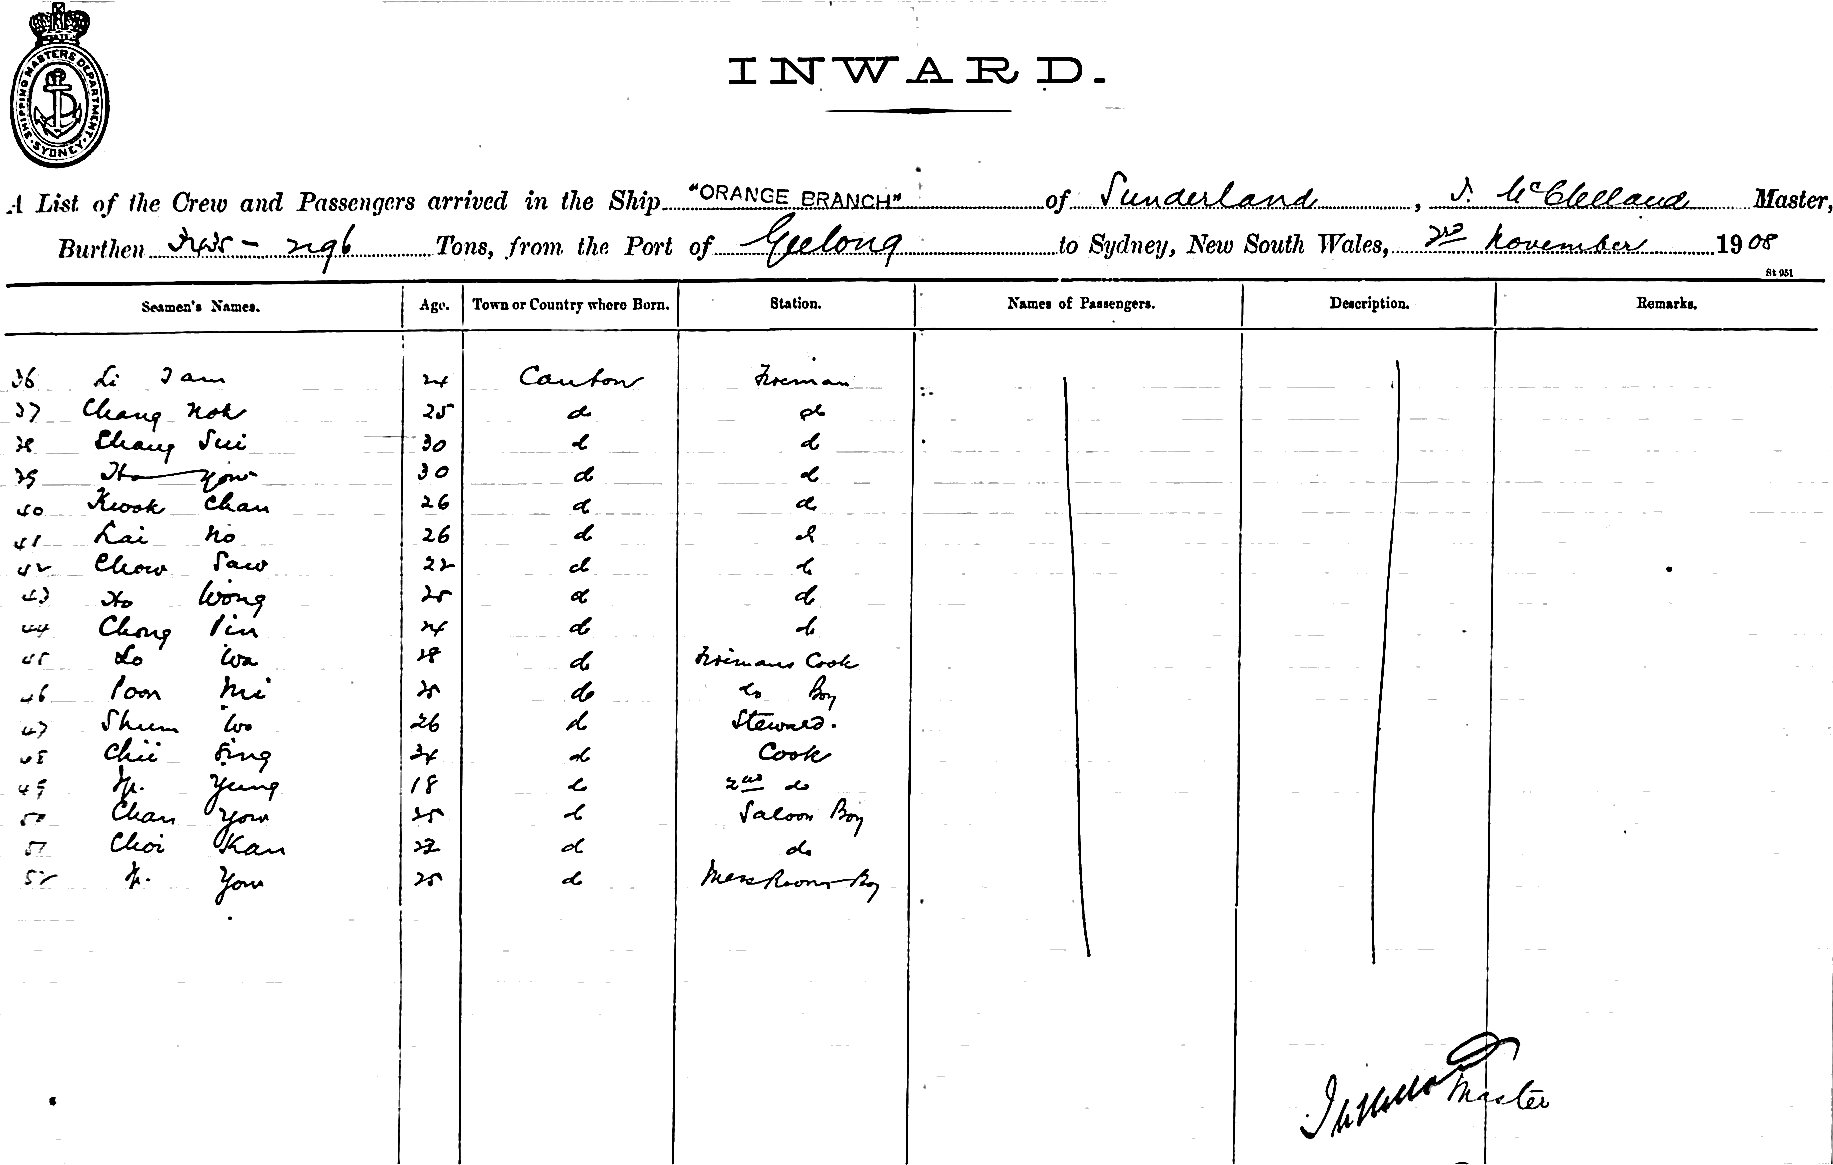 SHIPPING MASTERS DEPARTMENT · SYDNEY ·
INWARD.
A List of the Crew and Passengers arrived in the Ship "ORANGE BRANCH" of Sunderland, J. McClelland Master,
Burthen 3435 - 2196 Tons, from the Port of Geelong to Sydney, New South Wales, 2nd November 1908
St 951
Seamen's Names. Age. Town or Country where Born. Station. Names of Passengers. Description. Remarks.
36 Li Tam 24 Canton Fireman
37 Chang Nok 25 do do
38 Chang Sui 30 do do
39 Ho Yow 30 do do
40 Kwok Chan 26 do do
41 Lai No 26 do do
42 Chow Saw 22 do do
43 Ho Wong 25 do do
44 Chong Pin 24 do do
45 Lo Wa 28 do Firemans Cook
46 Poon Mi 25 do do Boy
47 Shum Wo 26 do Steward.
48 Chii Sing 34 do Cook
49 Yung 18 do 2nd do
50 Chan Yow 25 do Saloon Boy
51 Choi Kan do do
52 Yow 25 do Mess Room Boy
Master